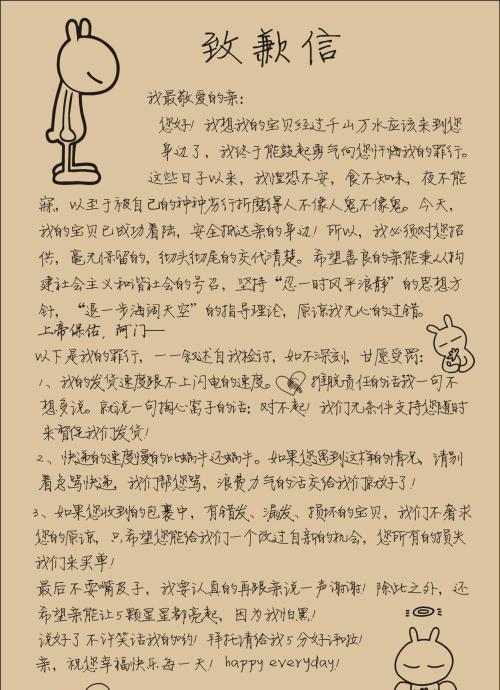 致歉信
我最敬爱的亲：
您好！我想我的宝贝经过千山万水应该来到您
身边了，我终于能鼓起勇气向您忏悔我的罪行。
这些日子以来，我惶恐不安，食不知味，夜不能
寐，以至于被自己的种种罪行折磨得人不像人鬼不像鬼。今天，
我的宝贝已成功着陆，安全抵达亲的身边！所以，我必须对您招
供，毫无保留的，彻头彻尾的交代清楚。希望善良的亲能秉从构
建社会主义和谐社会的号召，坚持“忍一时风平浪静”的思想方
针，“退一步海阔天空”的指导理论，原谅我无心的过错。
上帝保佑，阿门——
以下是我的罪行，一一叙述自我检讨，如不深刻，甘愿受罚：
1、我的发货速度跟不上闪电的速度。推脱责任的话我一句不
想多说。就说一句掏心窝子的话：对不起！我们无条件支持您随时
来督促我们发货！
2、快递的速度慢的比蜗牛还蜗牛。如果您遇到这样的情况，请别
着急骂快递，我们帮您骂，浪费力气的活交给我们做好了！
3、如果您收到的包裹中，有错发、漏发、损坏的宝贝，我们不奢求
您的原谅，只希望您能给我们一个改过自新的机会，您所有的损失
我们来买单！
最后不耍嘴皮子，我要认真的再跟亲说一声谢谢！除此之外，还
希望亲能让5颗星星都亮起，因为我怕黑！
说好了不许笑话我的哟！拜托请给我5分好评啦！
亲，祝您幸福快乐每一天！happy everyday！